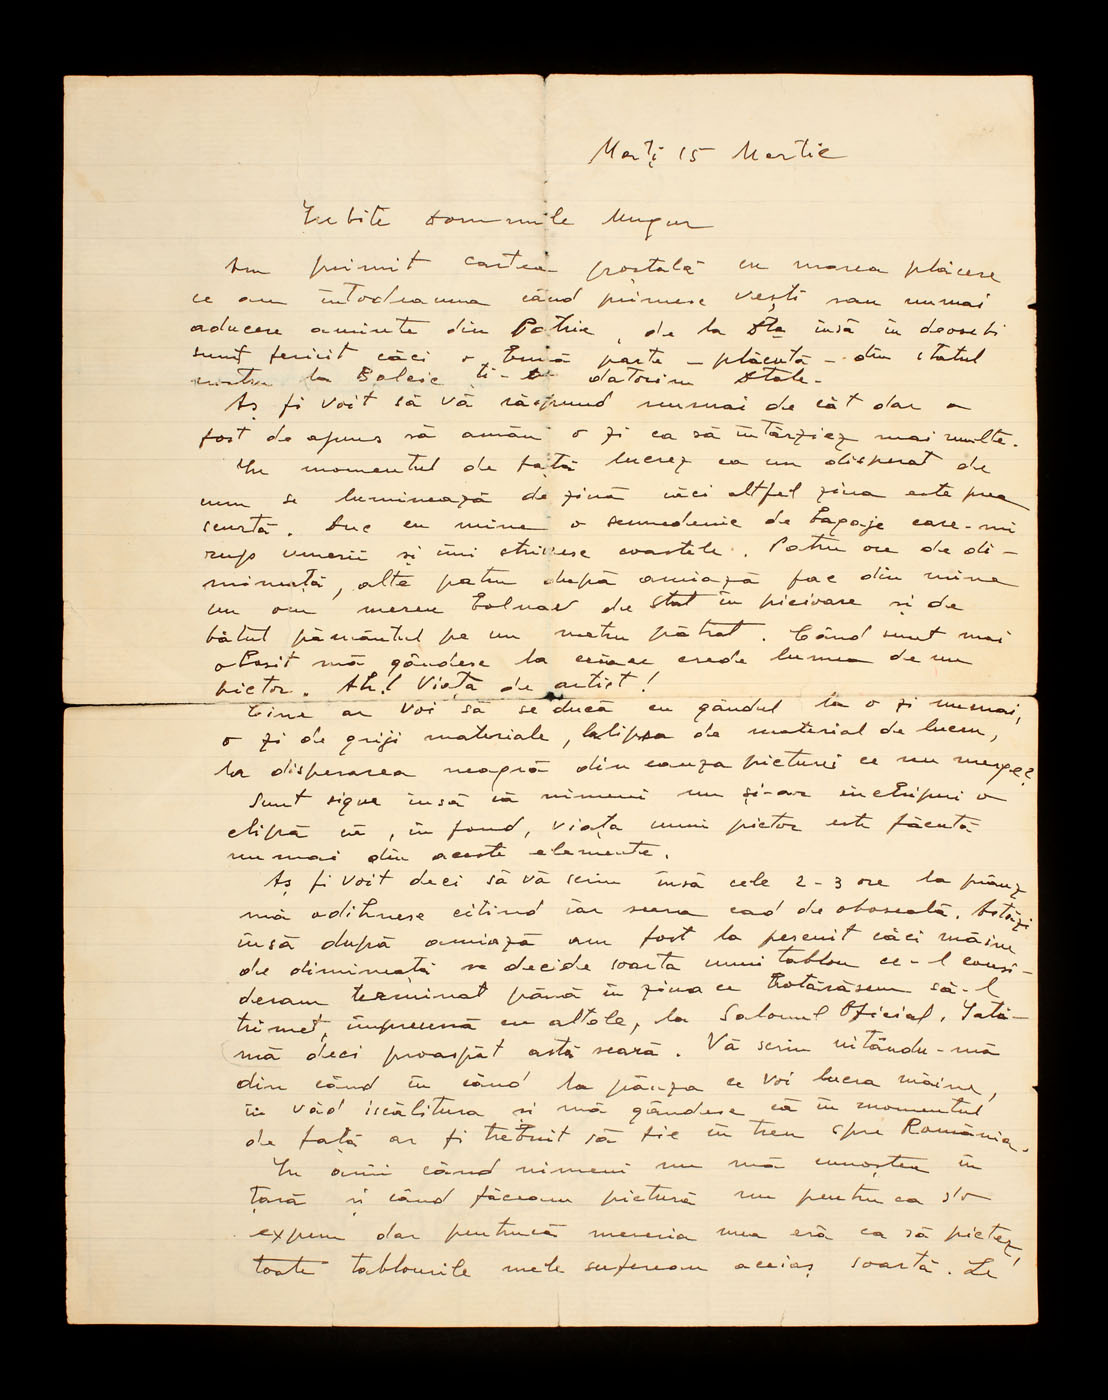 Marți 15 Martie
Iubite domnule Mugur
Am primit cartea poștală cu marea plăcere
ce am întodeauna când primesc vești sau numai
aducere aminte din Patrie, de la Dta însă în deosebi
sunt fericit căci o bună parte – plăcută – din statul
nostru la Balcic ți-o datorim Dtale.
Aș fi voit să vă răspund numai de cât dar a
fost de ajuns să amân o zi ca să întârziez mai multe.
In momentul de față lucrez ca un disperat de
cum se luminează de ziuă căci altfel ziua este prea
scurtă. Duc cu mine o sumedenie de bagaje care-mi
rup umerii și îmi strivesc coastele. Patru ore de di-
mineață, alte patru după amiază fac din mine
un om mereu bolnav de stat în picioare și de
bătut pământul pe un metru pătrat. Când sunt mai
obosit mă gândesc la ceiace crede lumea de un
pictor. Ah! Viața de artist!
Cine ar voi să se ducă cu gândul la o zi numai,
o zi de griji materiale, lalipsa de material de lucru,
la disperarea neagră din cauza picturii ce nu merge?
Sunt sigur însă că nimeni nu și-ar inchipui o
clipă că, în fond, viața unui pictor este făcută
numai din aceste elemente.
Aș fi voit deci să vă scriu însă cele 2-3 ore la prânz
mă odihnesc citind iar seara cad de oboseală. Astăzi
însă după amiază am fost la pescuit căci mâine
de dimineață se decide soarta unui tablou ce-l consi-
deram terminat până în ziua ce hotărâsem să-l
trimet, împreună cu altele, la Salonul Oficial. Iată-
mă deci proaspăt astă seară. Vă scriu uitându-mă
din când în când la pânza ce voi lucra mâine,
îi văd iscălitura și mă gândesc că în momentul
de față ar fi trebuit să fie în tren spre România.
In anii când nimeni nu mă cunoștea în
țară și când făceam pictură nu pentru ca s'o
expun dar pentrucă meseria mea eră ca să pictez,
toate tablourile mele sufereau aceiaș soartă. Le